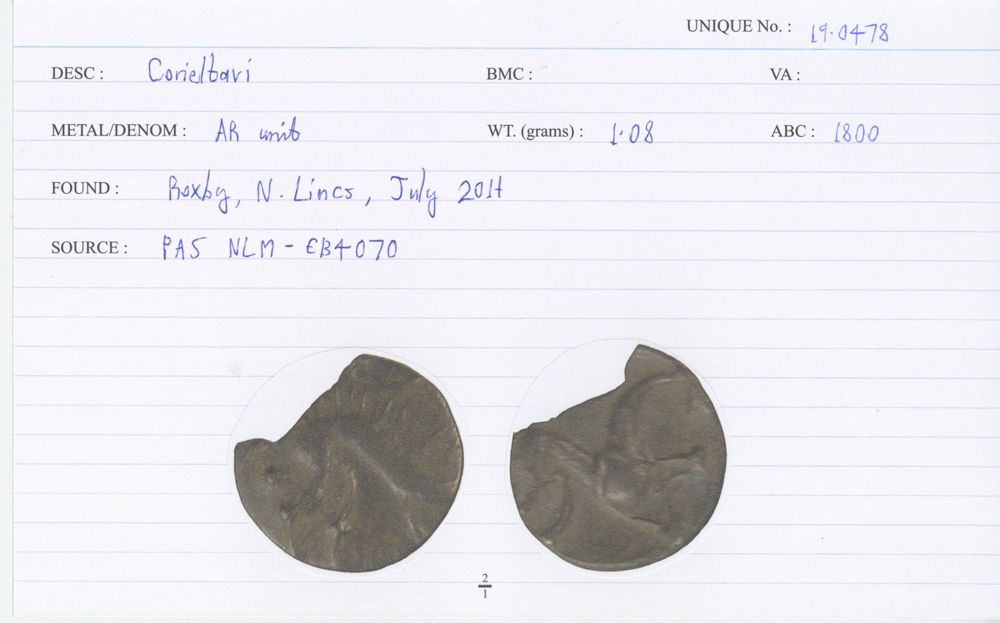 UNIQUE No. : 19.0478
DESC : Corieltavi BMC : VA :
METAL/DENOM : AR unit WT. (grams) : 1.08 ABC : 1800
FOUND : Roxby, N. Lincs, July 2011
SOURCE : PAS NLM - EB4070
2
1